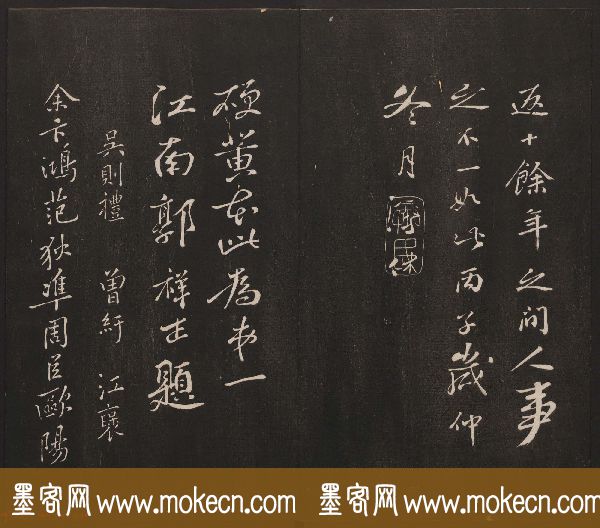 返十餘年之間人事
之不一如此丙子歲仲
冬月
硬黄本此為弟一
江南郭祥正題
吳則禮 曾紆 江褒
余卞鴻范狄準周臣歐陽
墨客网 www.mokecn.com 墨客网 www.mokecn.com